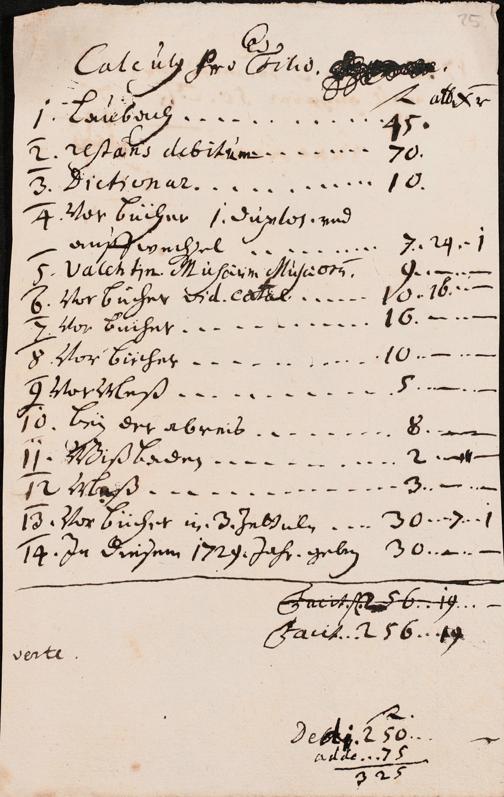 25
Calculus pro Filio.
fl alb xr
1. Laubach ........ 45.
2. restans debitum ------- 70.
3. Dictionar. ......... 10.
4. Vor bücher 1. duplos. und
auffwechsel .......... 7. 24. 1
5. Valentin. Musæum Musæorũ. 9.
6. Vor bücher vid. catal ...... 10. 16.
7. Vor bücher ------- 16
8 Vor bücher ------- 10
9 Vor ------- 5
10. bey der abreis ....... 8.
11. Wißbaden ....... 2
12 ------- 3
13. Vor bücher in 3. Zettuln ... 30. 7. 1
14. In diesem 1729. Jahr. geben 30.
Facit fl 256. 19
Facit .. 256 .. 19
verte.
fl.
Dedi. 250
adde .. 75
325